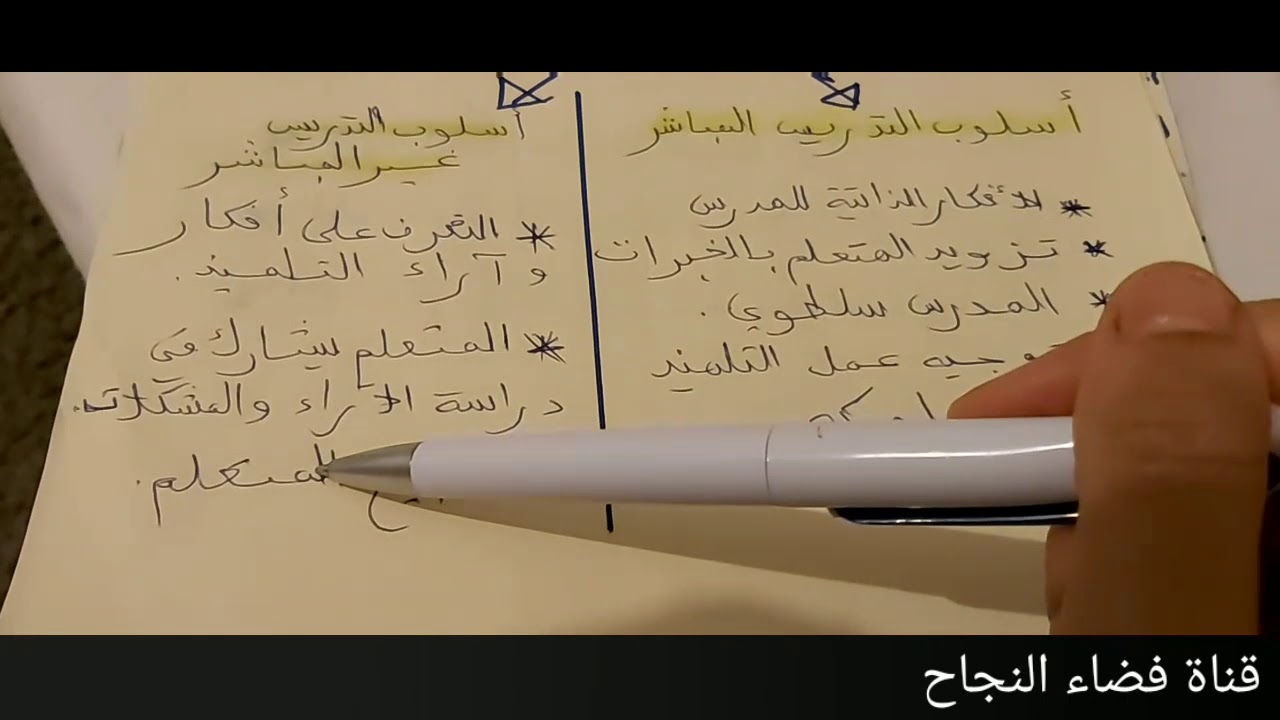 أسلوب التدريس المباشر
* الأفكار الذاتية للمدرس
* تزويد المتعلم بالخبرات
* المدرس سلطوي.
توجيه عمل التلميذ
أسلوب التدريس
غير المباشر
* التعرف على أفكار
و آراء التلميذ.
* المتعلم يشارك في
دراسة الآراء والمشكلات.
المتعلم.
قناة فضاء النجاح